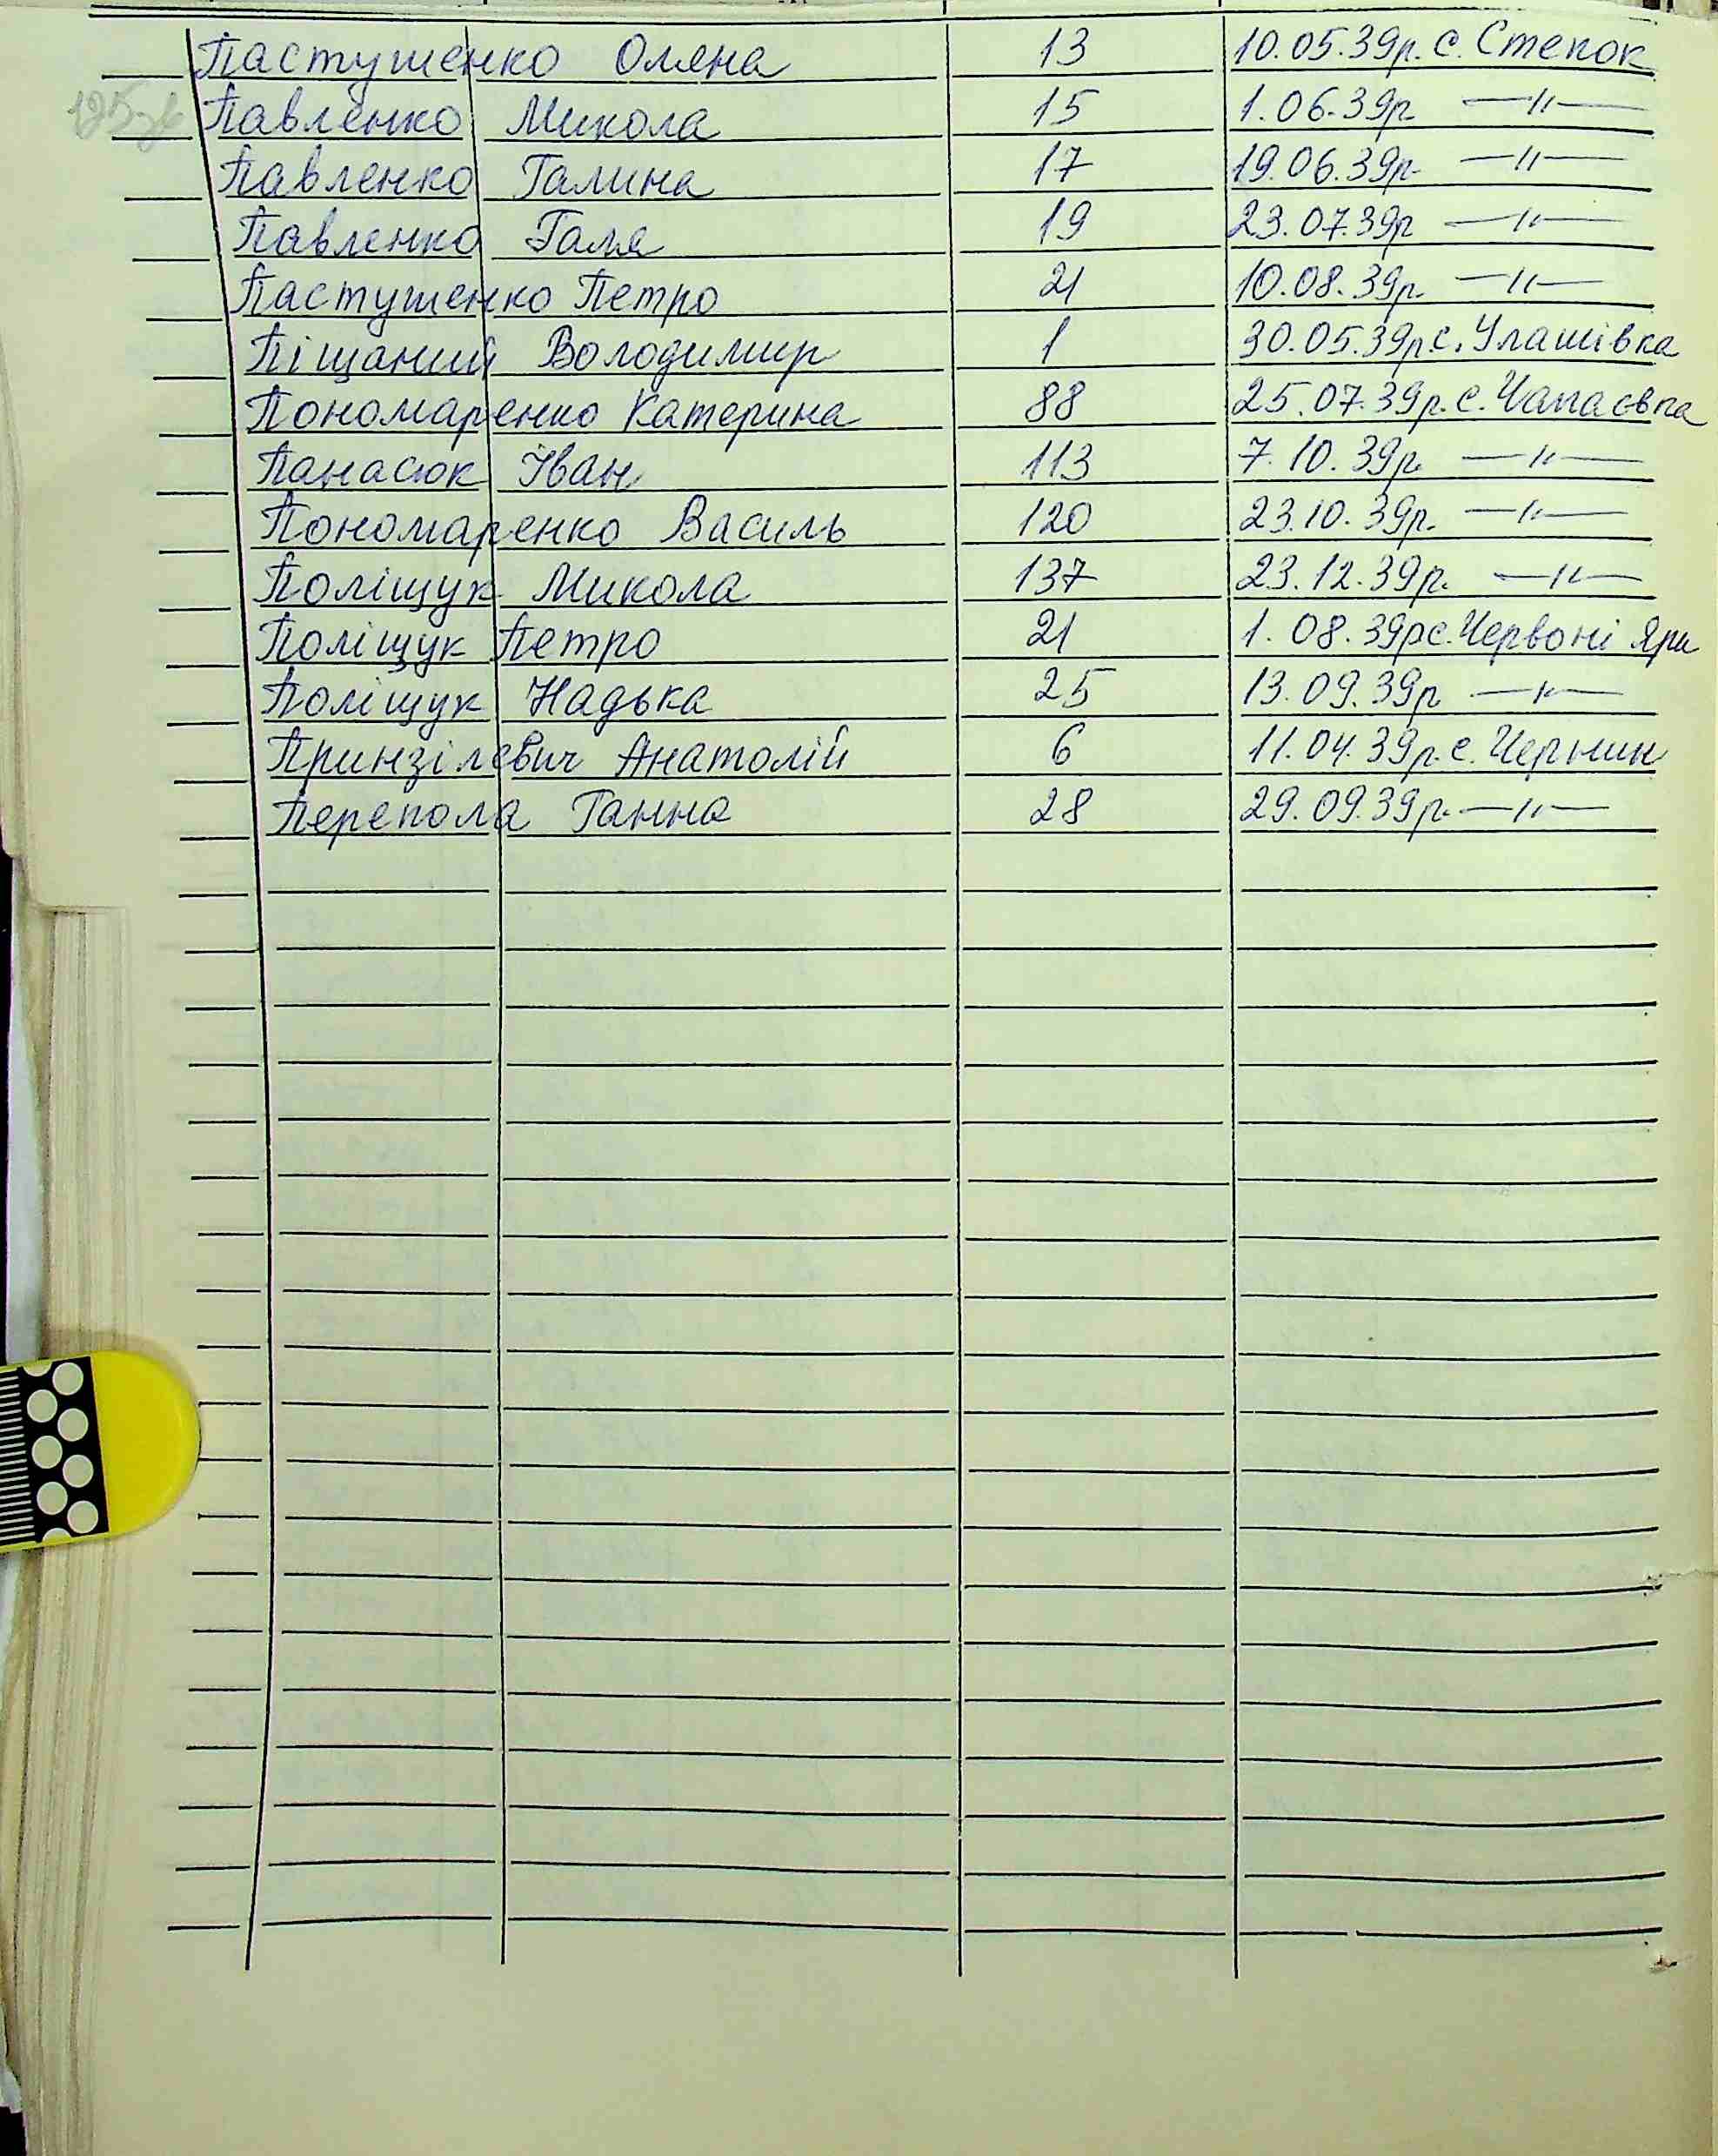 Пастушенко Олена 13 10.05.39р. с. Степок
Павленко Микола 15 1.06.39р —"—
Павленко Галина 17 19.06.39р. —"—
Павленко Галя 19 23.07.39р —"—
Пастушенко Петро 21 10.08.39р. —"—
Піщаний Володимир 1 30.05.39р с. Улашівка
Пономаренко Катерина 88 25.07.39р. с. Чапаєвка
Панасюк Іван 113 7.10.39р. —"—
Пономаренко Василь 120 23.10.39р. —"—
Поліщук Микола 137 23.12.39р. —"—
Поліщук Петро 21 1.08.39р с. Червоні Яри
Поліщук Надька 25 13.09.39р —"—
Принзілевич Анатолій 6 11.04.39р. с. Чернин
Перепола Ганна 28 29.09.39р. —"—